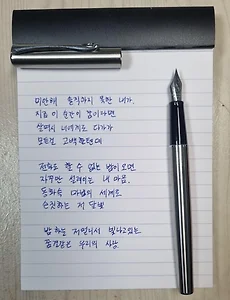 미안해 솔직하지 못한 내가
지금 이 순간이 꿈이라면
살며시 너에게로 다가가
모든걸 고백할텐데
전화도 할 수 없는 밤이 오면
자꾸만 설레이는 내 마음
동화속 마법의 세계로
손짓하는 저 달빛
밤하늘 저멀리서 빛나고있는
꿈결같은 우리의 사랑